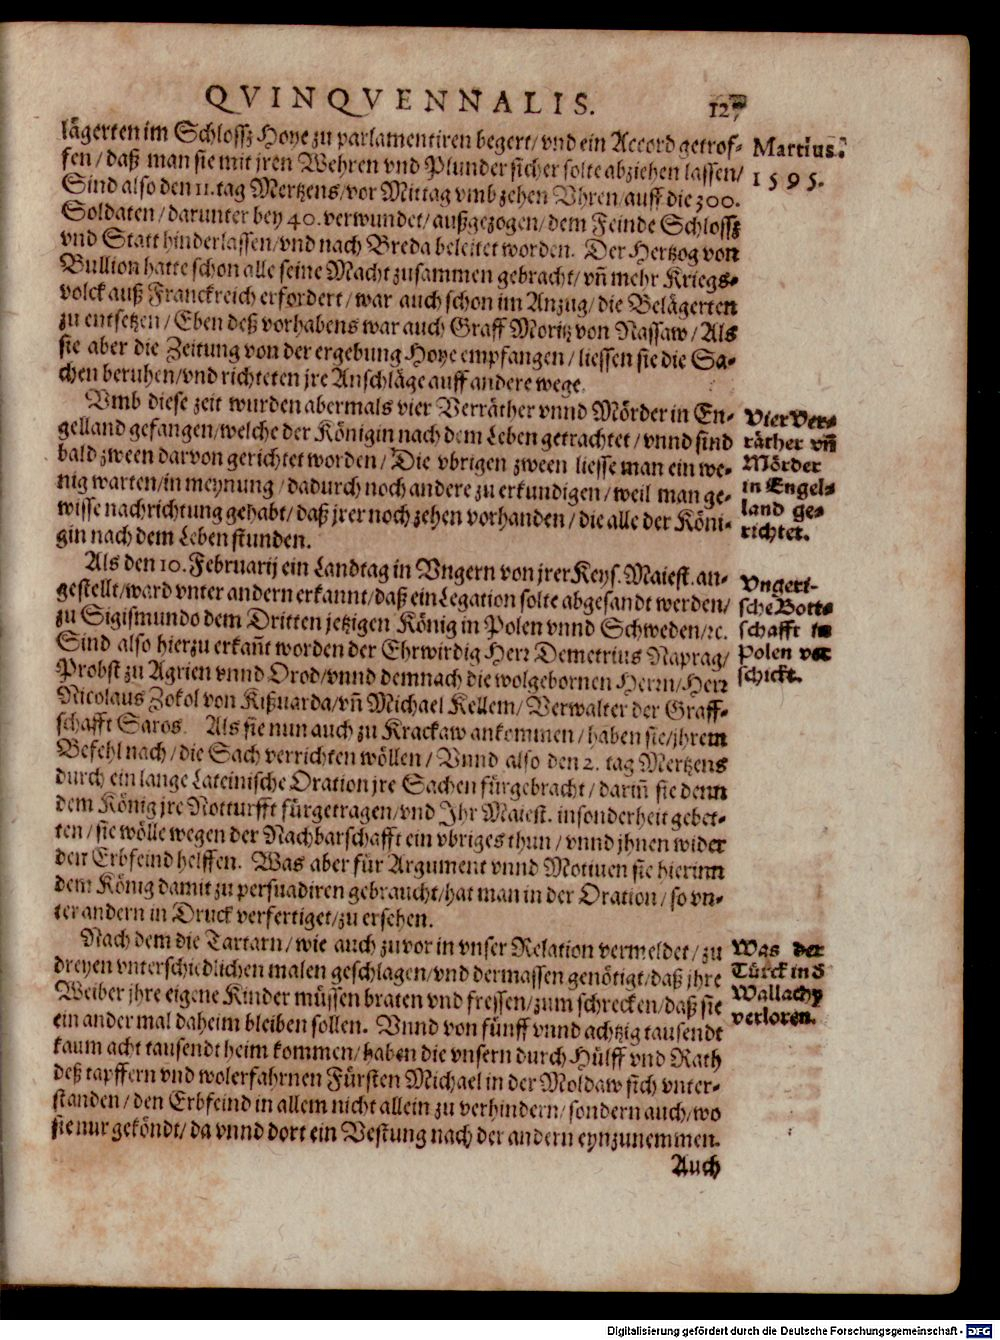 QVINQVENNALIS. 127
lägerten im Schlossz Hoye zu parlamentiren begert/ vnd ein Accord getrof-
fen/ daß man sie mit jren Wehren vnd Plunder sicher solte abziehen lassen/
Sind also den 11. tag Mertzens/ vor Mittag vmb zehen Vhren/ auff die 300.
Soldaten/ darunter bey 40. verwundet/ außgezogen/ dem Feinde Schlossz
vnd Statt hinderlassen/ vnd nach Breda beleitet worden. Der Hertzog von
Bullion hatte schon alle seine Macht zusammen gebracht/ vñ mehr Kriegs-
volck auß Franckreich erfordert/ war auch schon im Anzug/ die Belägerten
zu entsetzen/ Eben deß vorhabens war auch Graff Moritz von Nassaw/ Als
sie aber die Zeitung von der ergebung Hoye empfangen/ liessen sie die Sa-
chen beruhen/ vnd richteten jre Anschläge auff andere wege.
Martius.
1595.
Vmb diese zeit wurden abermals vier Verräther vnnd Mörder in En-
gelland gefangen/ welche der Königin nach dem Leben getrachtet/ vnnd sind
bald zween darvon gerichtet worden/ Die vbrigen zween liesse man ein we-
nig warten/ in meynung/ dadurch noch andere zu erkundigen/ weil man ge-
wisse nachrichtung gehabt/ daß jrer noch zehen vorhanden/ die alle der Köni-
gin nach dem Leben stunden.
Vier Ver-
räther vñ
Mörder
in Engel-
land ge-
richtet.
Als den 10. Februarij ein Landtag in Vngern von jrer Keys. Maiest. an-
gestellt/ ward vnter andern erkannt/ daß ein Legation solte abgesandt werden/
zu Sigismundo dem Dritten jetzigen König in Polen vnnd Schweden/ ꝛc.
Sind also hierzu erkañt worden der Ehrwirdig Herr Demetrius Naprag/
Probst zu Agrien vnnd Orod/ vnnd demnach die wolgebornen Herrn/ Herr
Nicolaus Zokol von Kißuarda/ vñ Michael Kellem/ Verwalter der Graff-
schafft Saros. Als sie nun auch zu Krackaw ankommen/ haben sie/ jhrem
Befehl nach/ die Sach verrichten wöllen/ Vnnd also den 2. tag Mertzens
durch ein lange Lateinische Oration jre Sachen fürgebracht/ dariñ sie denn
dem König jre Notturfft fürgetragen/ vnd Ihr Maiest. insonderheit gebet-
ten/ sie wölle wegen der Nachbarschafft ein vbriges thun/ vnnd jhnen wider
den Erbfeind helffen. Was aber für Argument vnnd Motiuen sie hierinn
dem König damit zu persuadiren gebraucht/ hat man in der Oration/ so vn-
ter andern in Druck verfertiget/ zu ersehen.
Vngeri-
sche Bott-
schafft in
Polen ver
schickt.
Nach dem die Tartarn/ wie auch zuvor in vnser Relation vermeldet/ zu
dreyen vnterschiedlichen malen geschlagen/ vnd dermassen genötigt/ daß jhre
Weiber jhre eigene Kinder müssen braten vnd fressen/ zum schrecken/ daß sie
ein ander mal daheim bleiben sollen. Vnnd von fünff vnnd achtzig tausendt
kaum acht tausendt heim kommen/ haben die vnsern durch Hülff vnd Rath
deß tapffern vnd wolerfahrnen Fürsten Michael in der Moldaw sich vnter-
standen/ den Erbfeind in allem nicht allein zu verhindern/ sondern auch/ wo
sie nur geköndt/ da vnnd dort ein Vestung nach der andern eynzunemmen.
Was der
Türck in d
Wallachy
verloren.
Auch
Digitalisierung gefördert durch die Deutsche Forschungsgemeinschaft - DFG